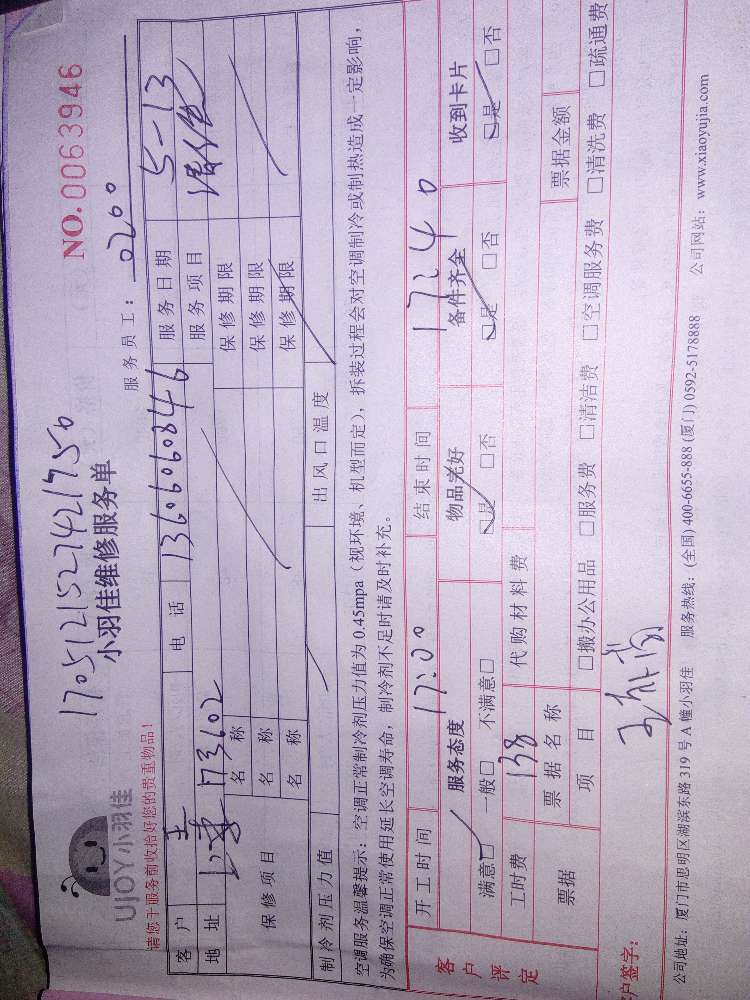 17051215271421750
UJOY小羽佳
小羽佳维修服务单
NO.0063946
请您于服务前收拾好您的贵重物品!
服务员工: 0200
客户 王 电话 13606060846 服务日期 5-13
地址 173602 服务项目
保修项目 名称 保修期限
名称 保修期限
名称 保修期限
制冷剂压力值 出风口温度
空调服务温馨提示:空调正常制冷剂压力值为 0.45mpa(视环境、机型而定),拆装过程会对空调制冷或制热造成一定影响,
为确保空调正常使用延长空调寿命,制冷剂不足时请及时补充。
客户评定
开工时间 17:00 结束时间 17:40
服务态度 物品完好 备件齐全 收到卡片
满意□ 一般□ 不满意□ □是 □否 □是 □否 □是 □否
工时费 138 代购材料费
票据 票据名称 票据金额
项目 □搬办公用品 □服务费 □清洁费 □空调服务费 □清洗费 □疏通费
户签字:
公司地址:厦门市思明区湖滨东路 319 号 A 幢小羽佳 服务热线:(全国) 400-6655-888 (厦门) 0592-5178888 公司网站:www.xiaoyujia.com